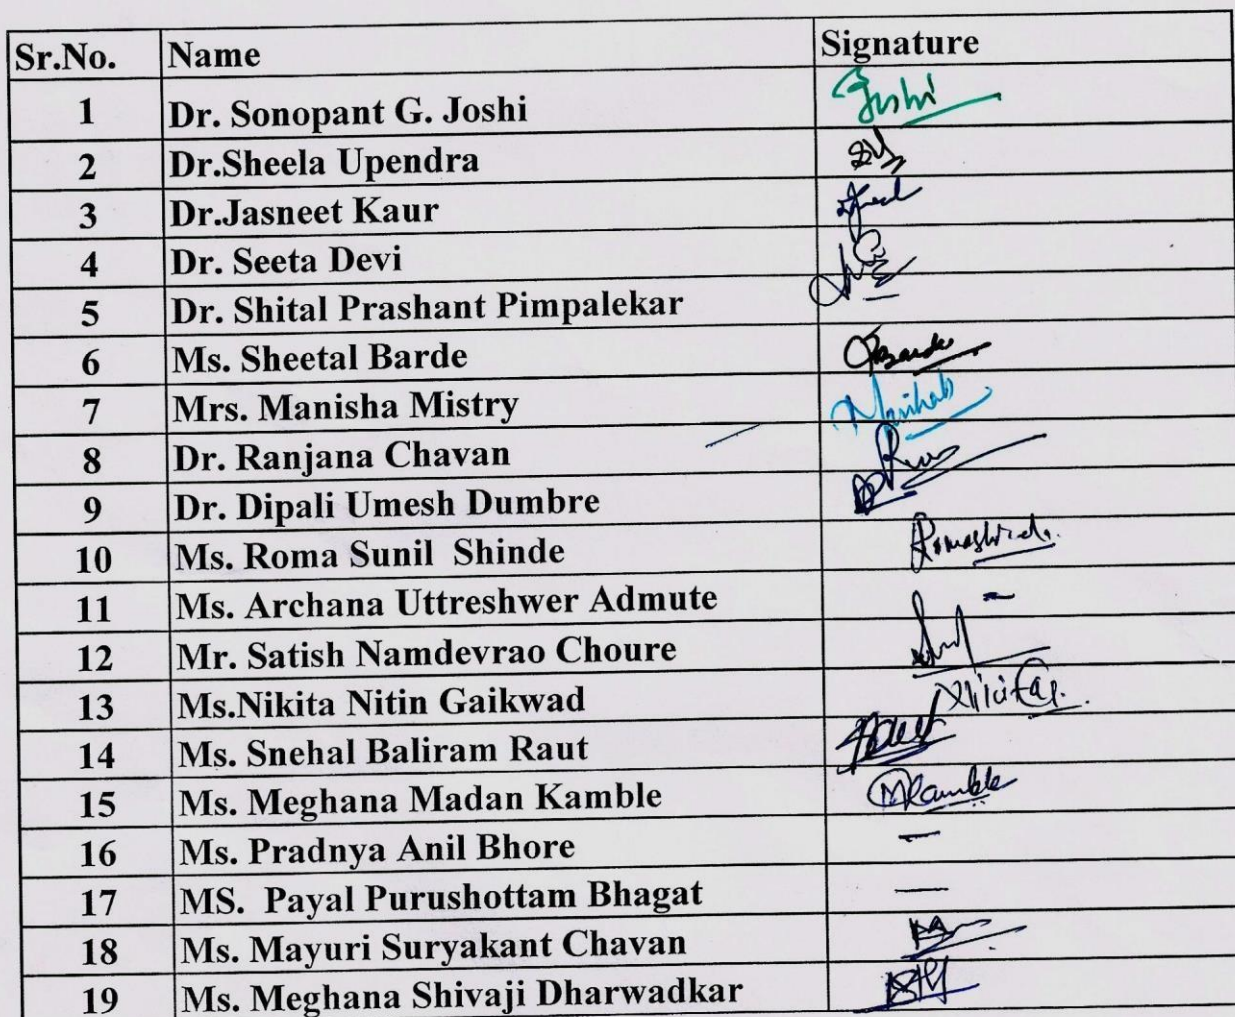 Sr.No. Name Signature
1 Dr. Sonopant G. Joshi Joshi
2 Dr.Sheela Upendra
3 Dr.Jasneet Kaur
4 Dr. Seeta Devi
5 Dr. Shital Prashant Pimpalekar
6 Ms. Sheetal Barde Barde
7 Mrs. Manisha Mistry
8 Dr. Ranjana Chavan
9 Dr. Dipali Umesh Dumbre
10 Ms. Roma Sunil Shinde
11 Ms. Archana Uttreshwer Admute –
12 Mr. Satish Namdevrao Choure
13 Ms.Nikita Nitin Gaikwad
14 Ms. Snehal Baliram Raut
15 Ms. Meghana Madan Kamble MKamble
16 Ms. Pradnya Anil Bhore –
17 MS. Payal Purushottam Bhagat –
18 Ms. Mayuri Suryakant Chavan
19 Ms. Meghana Shivaji Dharwadkar